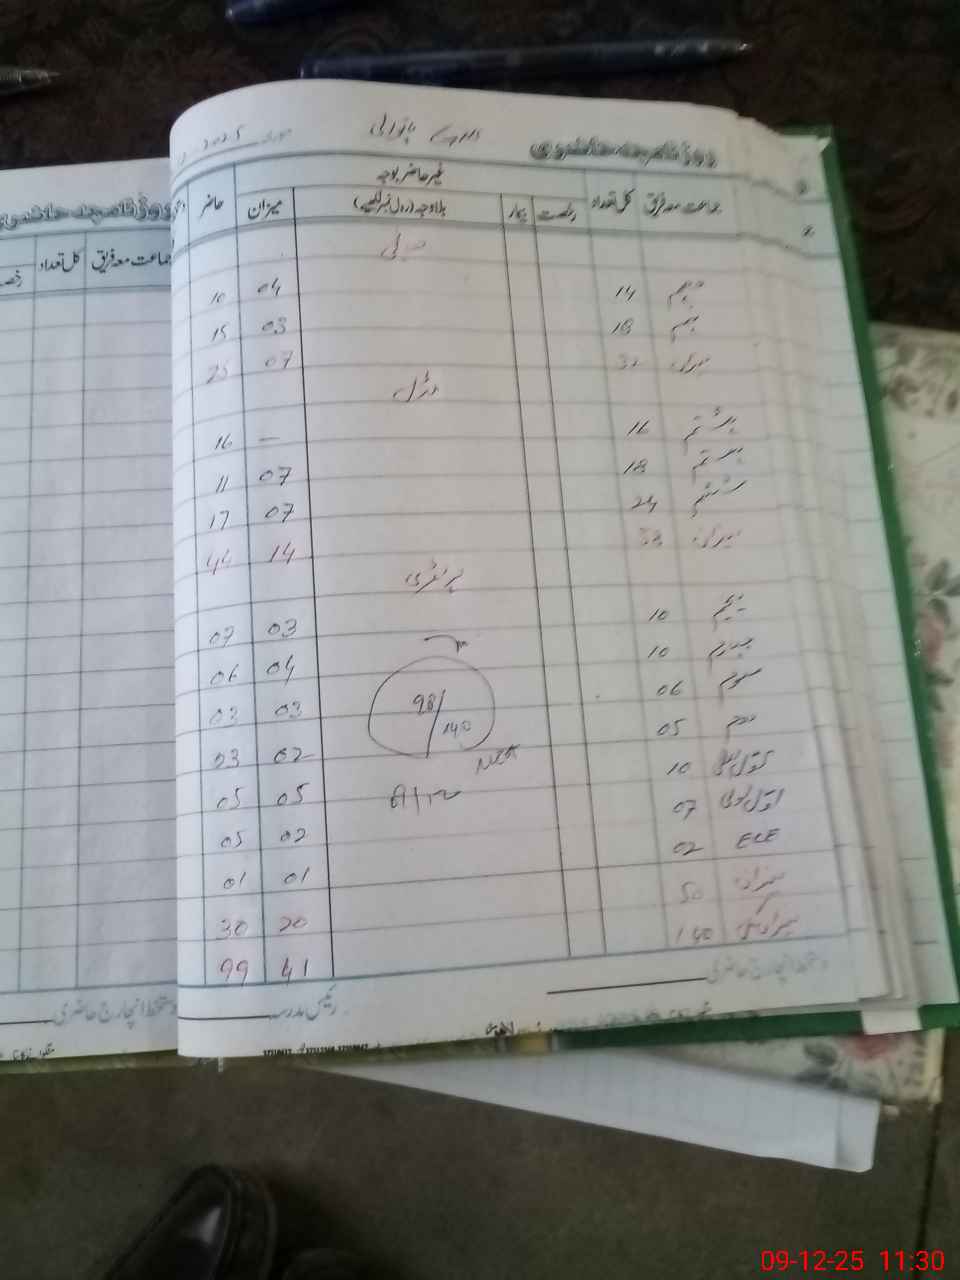 روزنامچہ حاضری 2025
جماعت معہ فریق کل تعداد رخصت بیمار غیر حاضر بوجہ بلاوجہ (رول نمبر لکھیے) میزان حاضر
دہم 14 04 10
نہم 18 03 15
میزان 32 07 25
مڈل
ہشتم 16 — 16
ہفتم 18 07 11
ششم 24 07 17
میزان 58 14 44
پرائمری
پنجم 10 03 07
چہارم 10 04 06
سوم 06 03 03
دوم 05 02 03
10 05 05
07 02 05
ECE 02 01 01
میزان 50 20 30
میزان کل 140 41 99
98/140
MEA
دستخط انچارج حاضری
رئیس مدرسہ
روزنامچہ حاضری
جماعت معہ فریق کل تعداد
دستخط انچارج حاضری
09-12-25 11:30